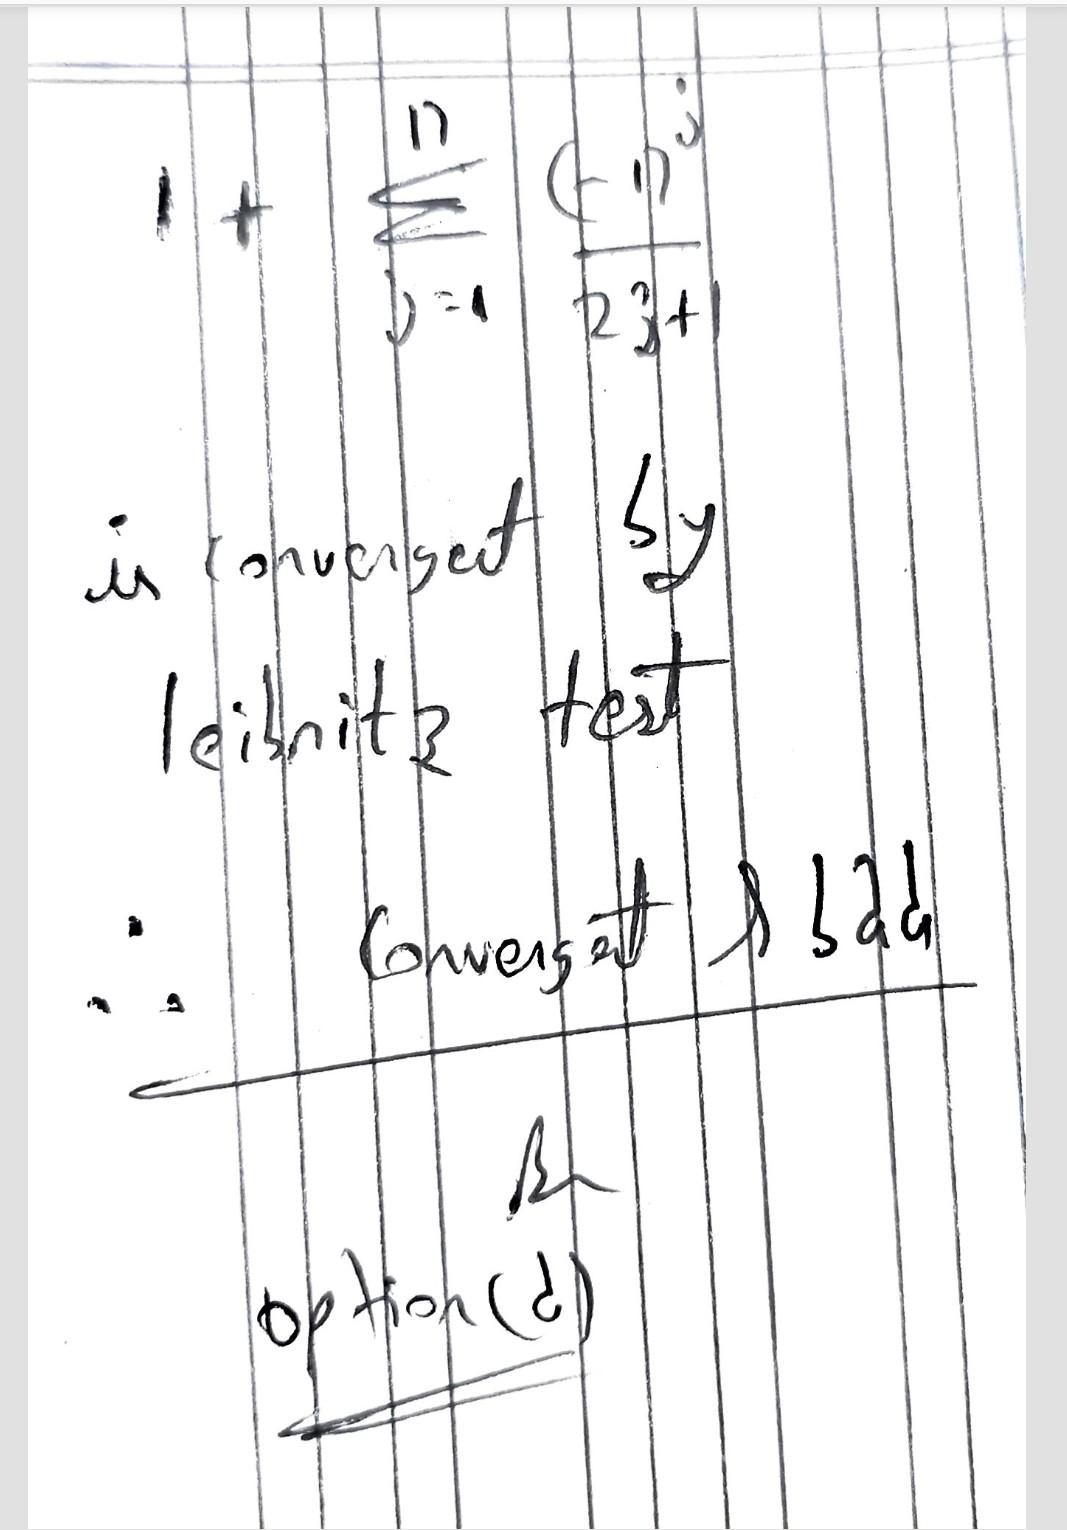 1 + n Σ j=1 (-1)^j / 2j+1
is convergent by
leibnitz test
∴ Convergent & bdd
option (d)